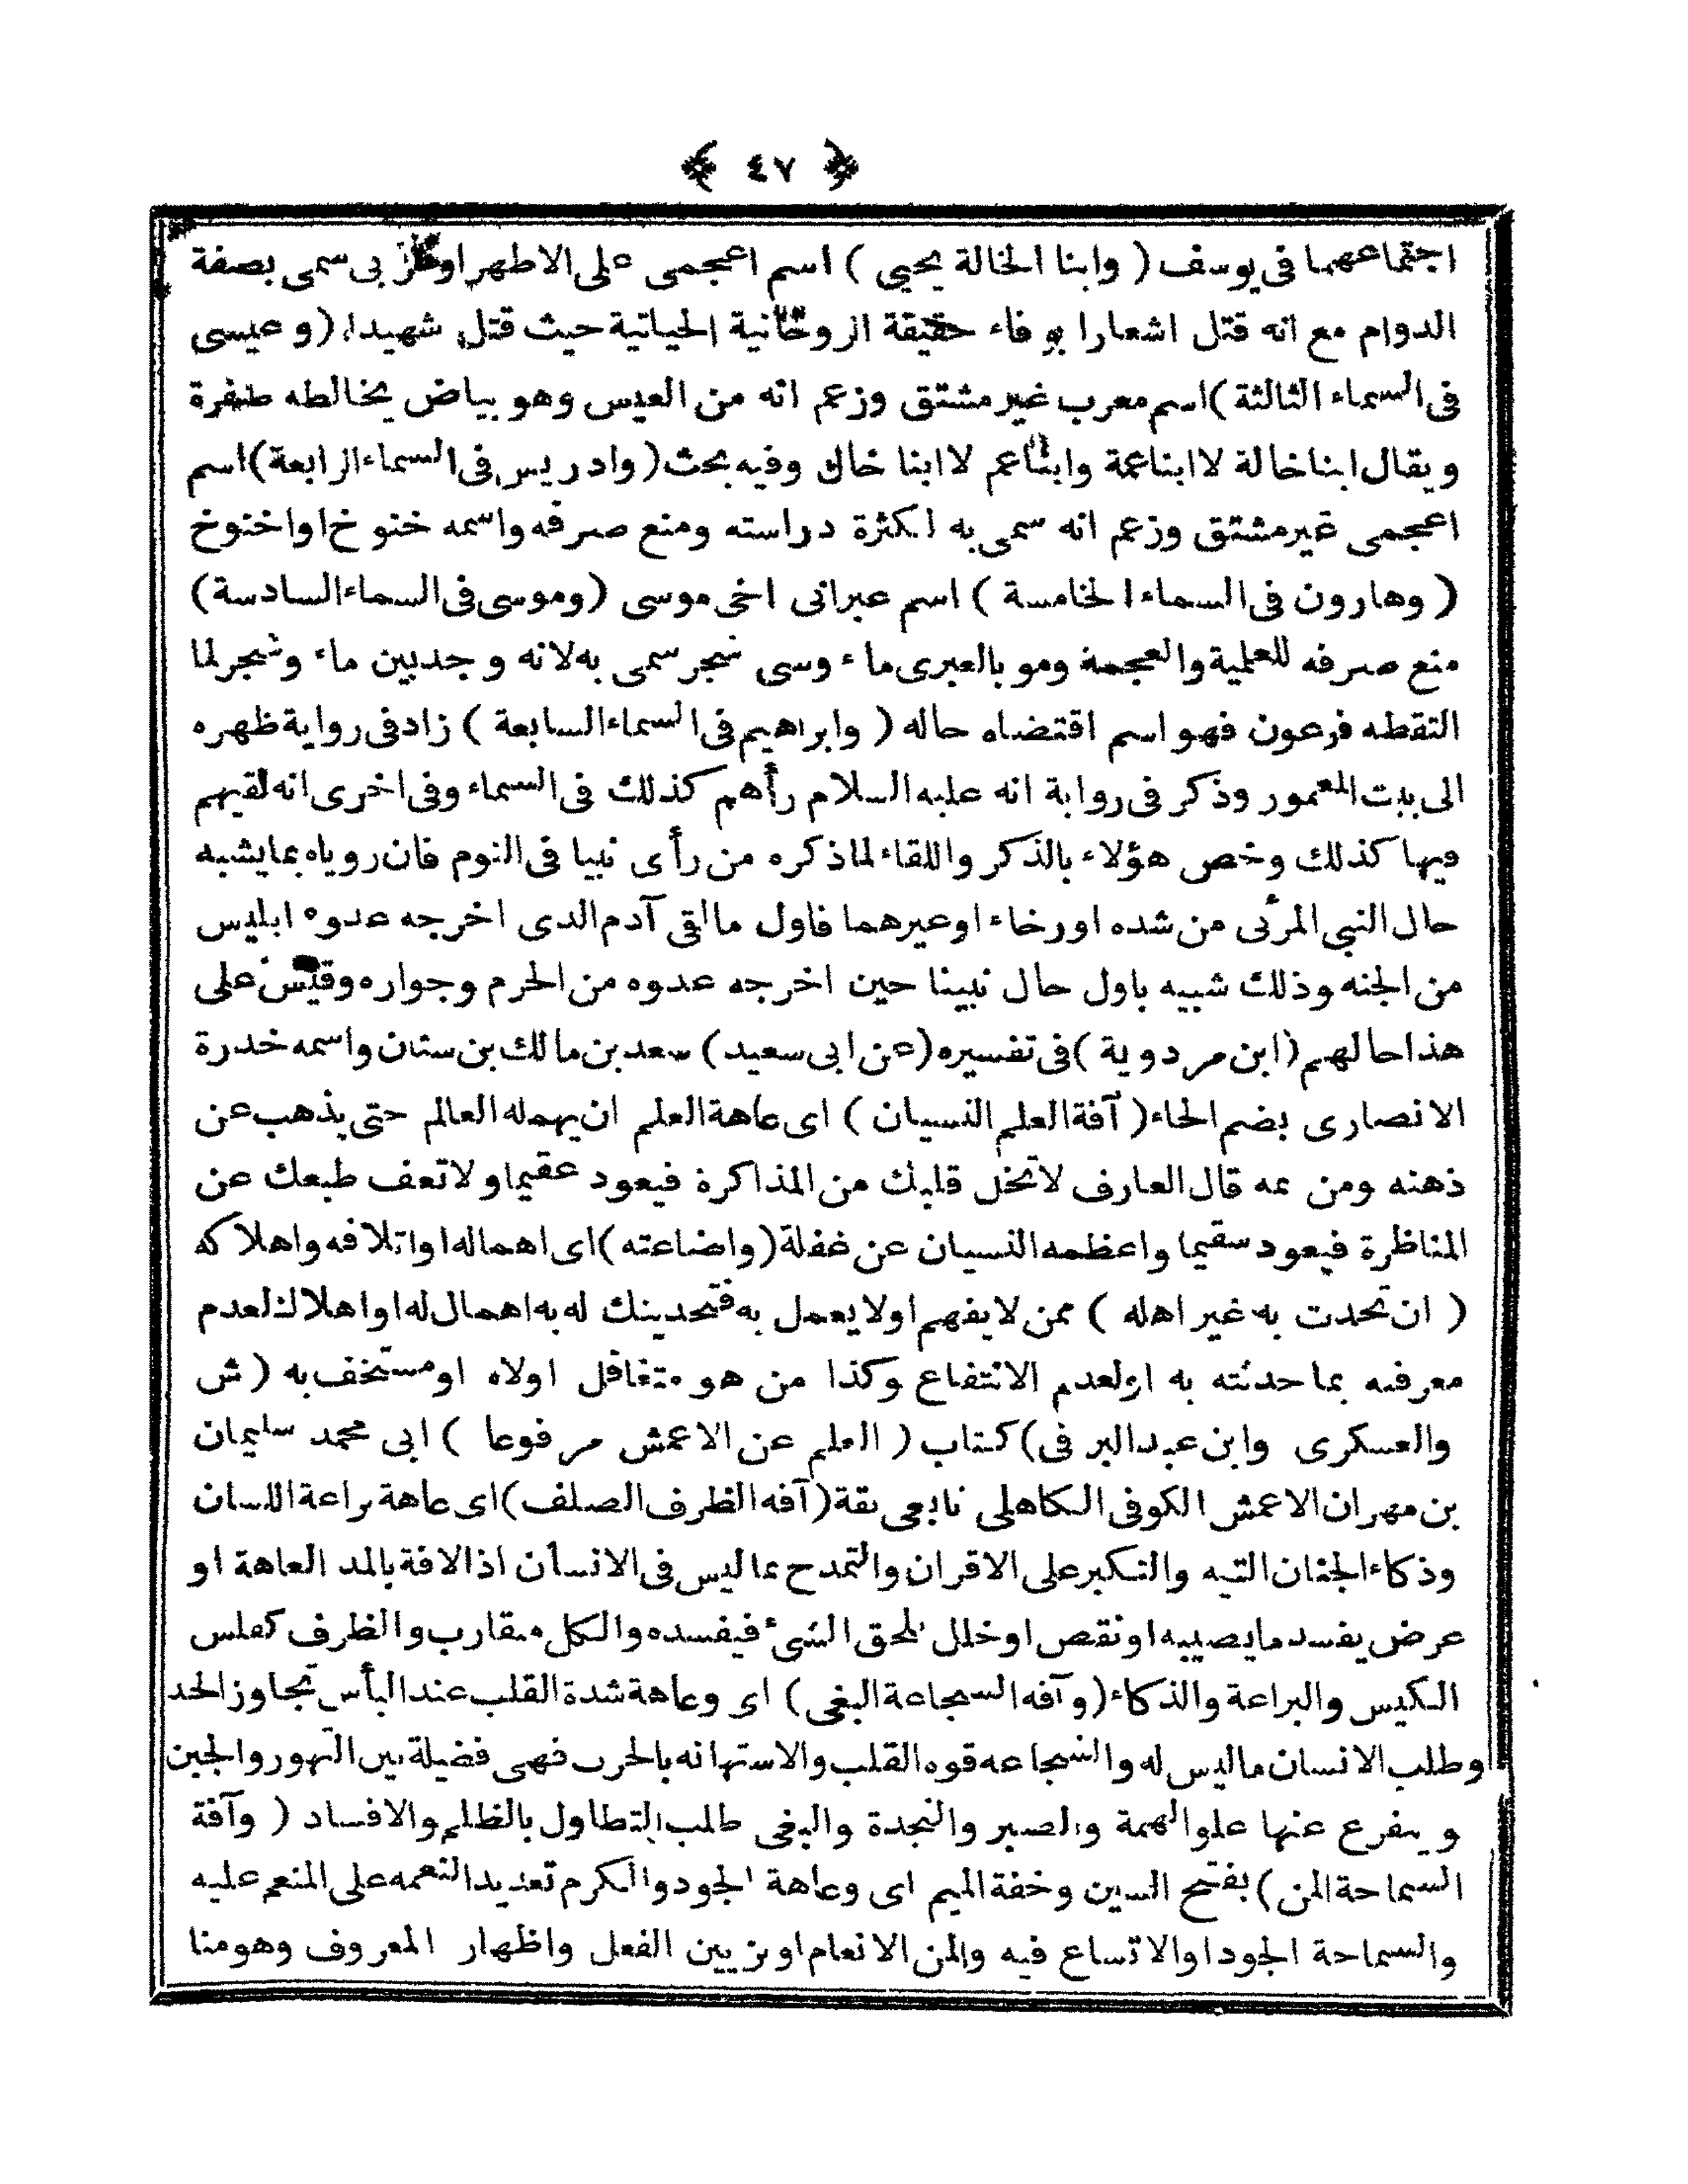 ﴿ ٤٧ ﴾
اجتماعهما فى يوسف ( وابنا الخالة يحيى ) اسم اعجمى على الاظهر او عز بى سمى بصفة
الدوام مع انه قتل اشعارا بو فاء حقيقة الروحانية الحياتية حيث قتل شهيدا ( و عيسى
فى السماء الثالثة ) اسم معرب غير مشتق وزعم انه من العيس وهو بياض يخالطه صفرة
ويقال ابنا خالة لا ابنا عمة وابنا عم لا ابنا خال وفيه بحث ( وادريس فى السماء الرابعة ) اسم
اعجمى غير مشتق وزعم انه سمى به لكثرة دراسته ومنع صرفه واسمه خنوخ او اخنوخ
( وهارون فى السماء الخامسة ) اسم عبرانى اخى موسى ( وموسى فى السماء السادسة )
منع صرفه للعلمية والعجمة ومو بالعبرى ماء وسى شجر سمى به لانه وجد بين ماء وشجر لما
التقطه فرعون فهو اسم اقتضاه حاله ( وابراهيم فى السماء السابعة ) زاد فى رواية ظهره
الى بيت المعمور وذكر فى رواية انه عليه السلام رأهم كذلك فى السماء وفى اخرى انه لقيهم
فيها كذلك وخص هؤلاء بالذكر واللقاء لما ذكره من رأى نبيا فى النوم فان روياه بما يشبه
حال النبى المرئى من شده او رخاء او غيرهما فاول ما لقى آدم الذى اخرجه عدوه ابليس
من الجنه وذلك شبيه باول حال نبينا حين اخرجه عدوه من الحرم وجواره وقيس على
هذا حالهم ( ابن مردوية ) فى تفسيره ( عن ابى سعيد ) سعد بن مالك بن سنان واسمه خدرة
الانصارى بضم الخاء ( آفة العلم النسيان ) اى عاهة العلم ان يهمله العالم حتى يذهب عن
ذهنه ومن ثمه قال العارف لا تخل قلبك من المذاكرة فيعود عقيما ولا تعف طبعك عن
المناظرة فيعود سقيما واعظمه النسيان عن غفلة ( واضاعته ) اى اهماله او اتلافه واهلاكه
( ان تحدث به غير اهله ) ممن لا يفهم او لا يعمل به فتحديثك له به اهمال له او اهلاك لعدم
معرفته بما حدثته به او لعدم الانتفاع وكذا من هو متغافل او لاه او مستخف به ( ش
والعسكرى وابن عبد البر فى ) كتاب ( العلم عن الاعمش مرفوعا ) ابى محمد سليمان
بن مهران الاعمش الكوفى الكاهلى تابعى ثقة ( آفه الظرف الصلف ) اى عاهة براعة اللسان
وذكاء الجنان التيه والتكبر على الاقران والتمدح بما ليس فى الانسان اذ الافة بالمد العاهة او
عرض يفسد ما يصيبه او نقص او خلل يلحق الشىء فيفسده والكل متقارب والظرف كفلس
الكيس والبراعة والذكاء ( وآفه الشجاعة البغى ) اى وعاهة شدة القلب عند البأس تجاوز الحد
وطلب الانسان ما ليس له والشجاعه قوه القلب والاستهانه بالحرب فهى فضيلة بين التهور والجبن
ويتفرع عنها علو الهمة والصبر والنجدة والبغى طلب التطاول بالظلم والافساد ( وآفة
السماحة المن ) بفتح السين وخفة الميم اى وعاهة الجود والكرم تعديد النعمه على المنعم عليه
والسماحة الجود او الاتساع فيه والمن الانعام او تزيين الفعل واظهار المعروف وهو منا